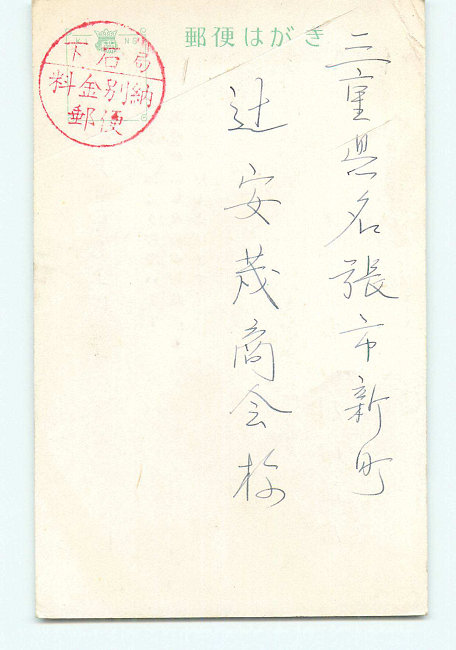 郵便はがき
下呂局
料金別納
郵便
三重県名張市新町
辻安茂商会様